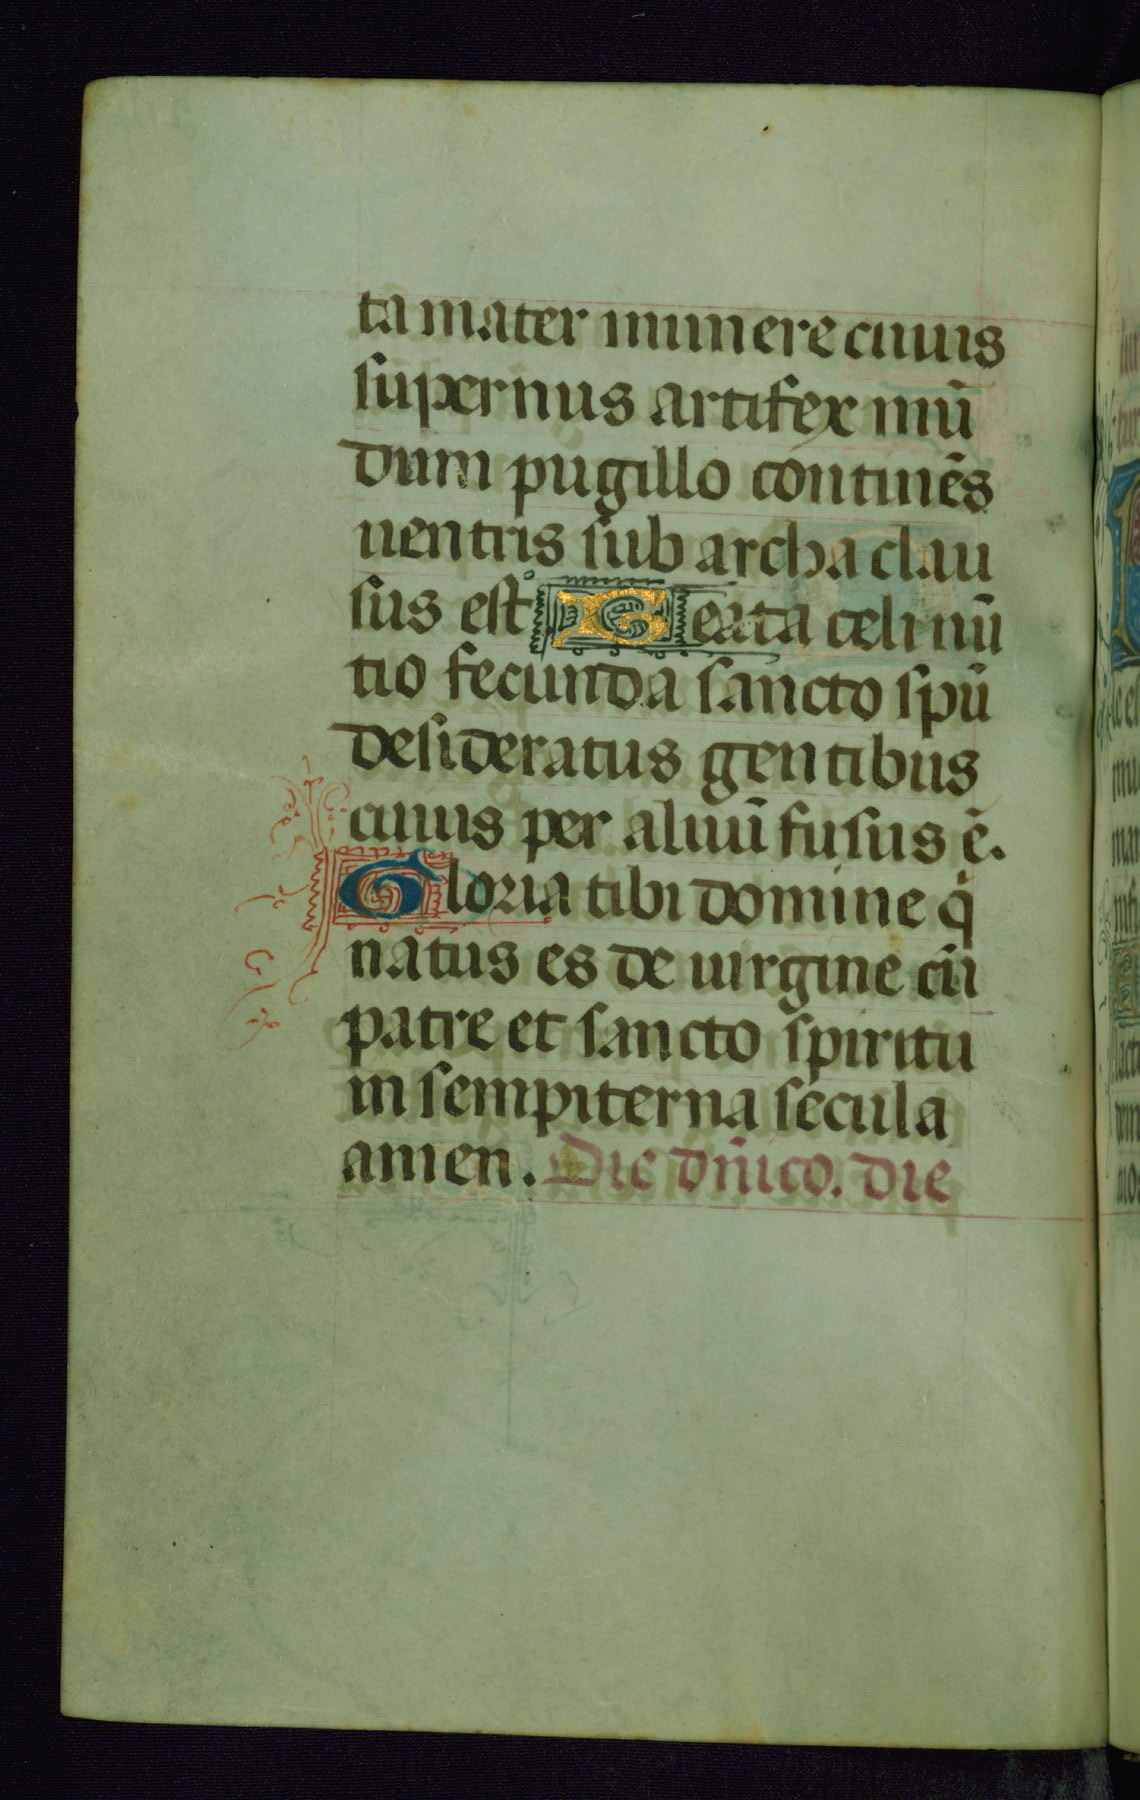 ta mater munere cuuis
supernus artifex mū
dum pugillo continēs
uentris sub archa clau
sus est. Beata celi nū
tio fecunda sancto spū
desideratus gentibus
cuuis per aluū fusus ē.
Gloria tibi domine q̇
natus es de uirgine cū
patre et sancto spiritu
in sempiterna secula
amen. Die dn̄ico. die